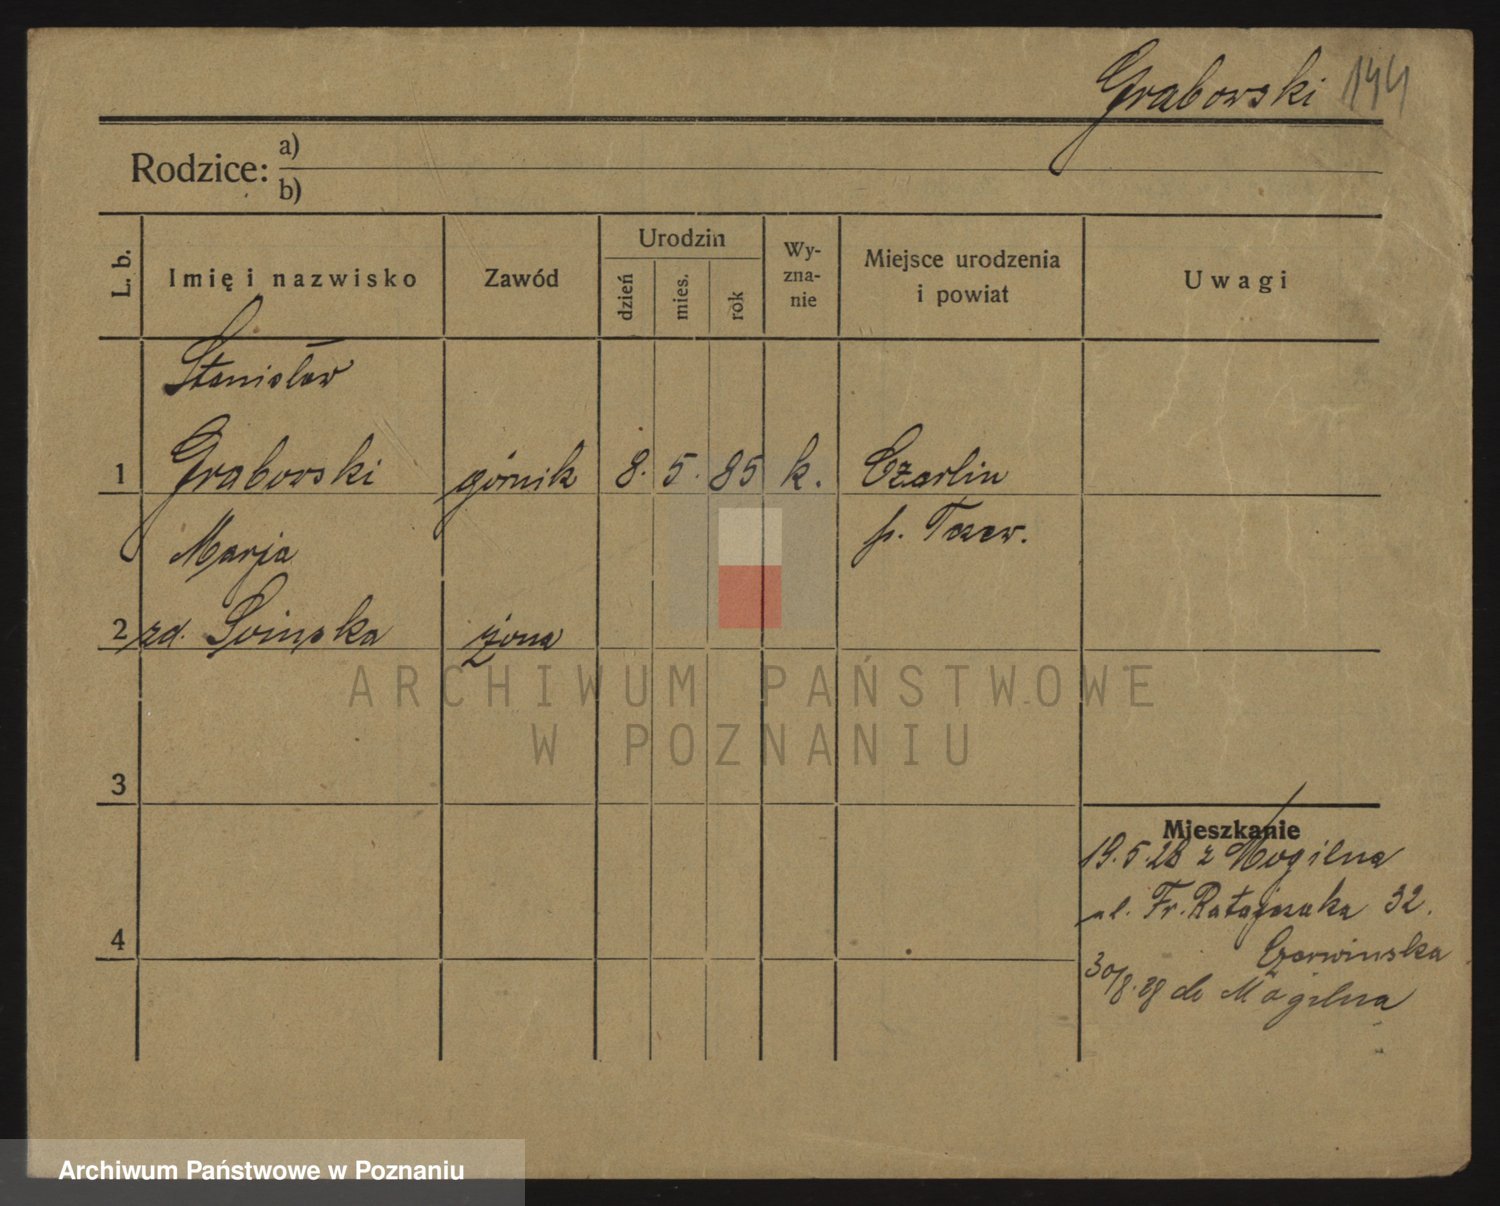 Grabowski 144
Rodzice: a)
b)
L. b.
Imię i nazwisko
Zawód
Urodzin
dzień
mies.
rok
Wy-
zna-
nie
Miejsce urodzenia
i powiat
Uwagi
Stanisław
1 Grabowski górnik 8. 5. 85 k. Czarlin
p. Tczew.
Marja
2 zd. żona
3
4
Mieszkanie
19.5.28 z Mogilna
ul. Fr. Ratajczaka 32.
Czerwinska
30/8.28 do Mogilna
ARCHIWUM PAŃSTWOWE
W POZNANIU
Archiwum Państwowe w Poznaniu